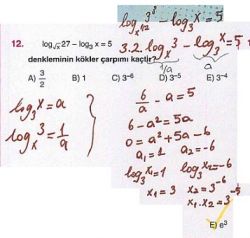 log_{x^{1/2}} 3^3 - log_3 x = 5
12. log_{√x} 27 - log_3 x = 5
3.2.log_x 3 - log_3 x = 5
1/a a
denkleminin kökler çarpımı kaçtır?
A) 3/2 B) 1 C) 3^{-6} D) 3^{-5} E) 3^{-4}
log_3 x = a
log_x 3 = 1/a
6/a - a = 5
6 - a^2 = 5a
0 = a^2 + 5a - 6
a_1 = 1 a_2 = -6
log_3 x_1 = 1 log_3 x_2 = -6
x_1 = 3 x_2 = 3^{-6}
x_1 . x_2 = 3^{-5}
E) e^3